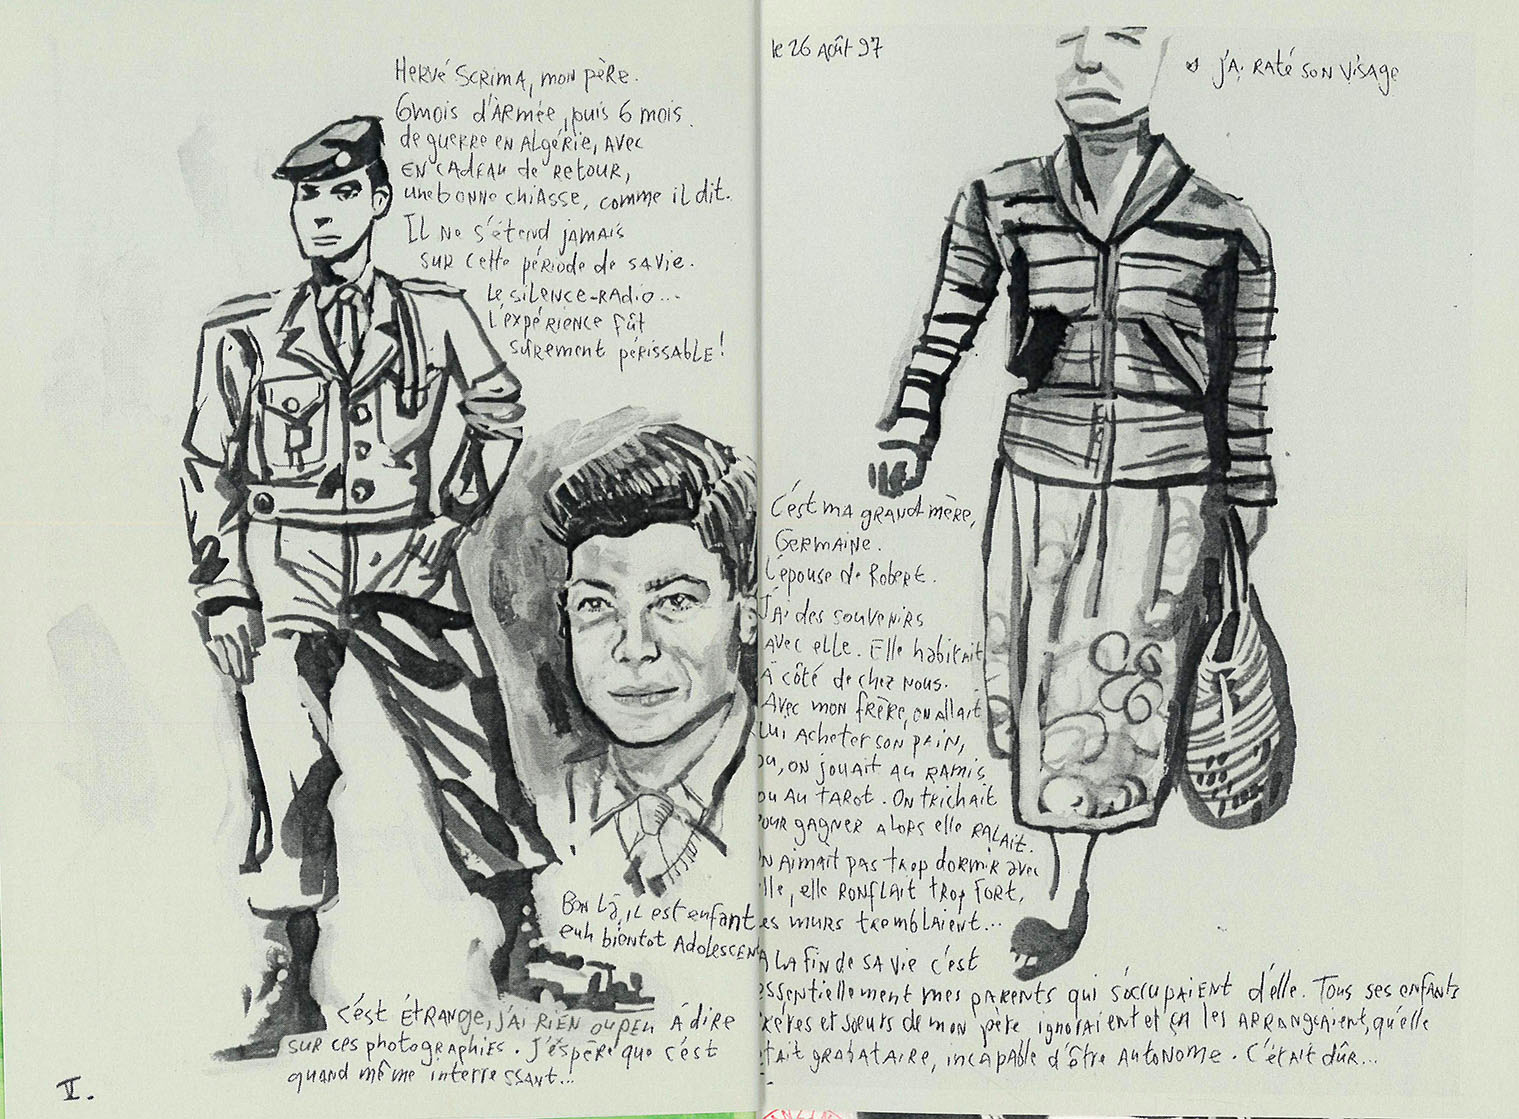 Hervé Scrima, mon père.
6 mois d'Armée, puis 6 mois
de guerre en Algérie, avec
en cadeau de retour,
une bonne chiasse, comme il dit.
Il ne s'étend jamais
sur cette période de sa vie.
Le silence-radio...
l'expérience fût
sûrement périssable !
Bon là, il est enfant
euh bientot Adolescen
C'est étrange, j'ai rien ou peu à dire
sur ces photographies. J'espère que c'est
quand même interressant...
V.
le 26 Août 97
j'ai raté son visage
C'est ma grand mère,
Germaine.
L'épouse de Robert.
J'ai des souvenirs
avec elle. Elle habitait
à côté de chez nous.
Avec mon frère, on allait
lui acheter son pain,
ou, on jouait au ramis
ou au tarot. On trichait
pour gagner alors elle ralait.
on aimait pas trop dormir avec
elle, elle ronflait trop fort,
les murs tremblaient...
A la fin de sa vie c'est
essentiellement mes parents qui s'occupaient d'elle. Tous ses enfants
frères et soeurs de mon père ignoraient et ça les arrangeaient, qu'elle
était grabataire, incapable d'être autonome. C'était dûr...